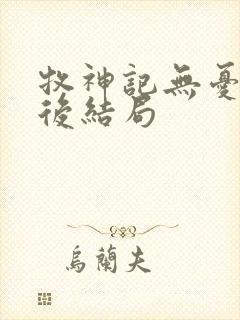 牧神記無憂
後結局
烏蘭夫